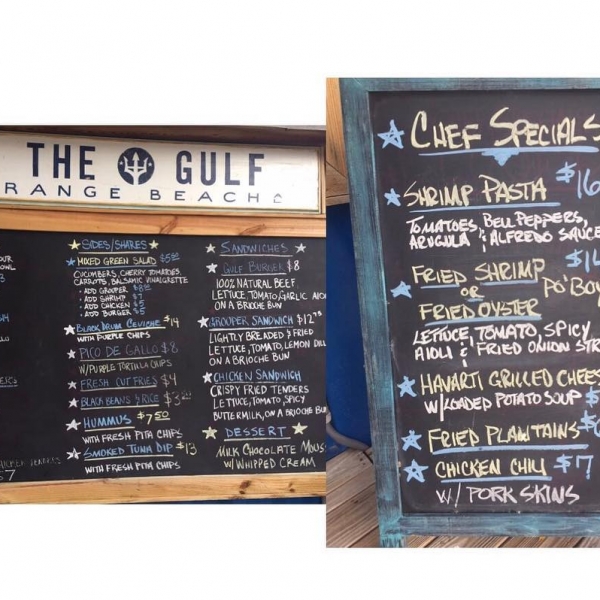 THE GULF
RANGE BEACH
SIDES/SHARES
MIXED GREEN SALAD
CUCUMBERS, CHERRY TOMATOES,
CARROTS, BALSAMIC VINAIGRETTE
• ADD GROUPER $8
• ADD SHRIMP $7
• ADD CHICKEN $5
• ADD BURGER $5
BLACK DRUM CEVICHE $14
WITH PURPLE CHIPS
PICO DE GALLO $8
W/PURPLE TORTILLA CHIPS
FRESH CUT FRIES $4
BLACK BEANS & RICE
HUMMUS $7.50
WITH FRESH PITA CHIPS
SMOKED TUNA DIP $13
WITH FRESH PITA CHIPS
SANDWICHES
GULF BURGER $8
100% NATURAL BEEF
LETTUCE, TOMATO, GARLIC
ON A BRIOCHE BUN
GROUPER SANDWICH
LIGHTLY BREADED & FRIED
LETTUCE, TOMATO, LEMON DILL
ON A BRIOCHE BUN
CHICKEN SANDWICH
CRISPY FRIED TENDERS
LETTUCE, TOMATO, SPICY
BUTTERMILK, ON A BRIOCHE BUN
DESSERT
MILK CHOCOLATE MOUS
W/ WHIPPED CREAM
CHEF SPECIALS
SHRIMP PASTA $16
TOMATOES, BELL PEPPERS,
ARUGULA & ALFREDO SAUCE
FRIED SHRIMP $14
OR PO'BOY
FRIED OYSTER
LETTUCE, TOMATO, SPICY
AIOLI & FRIED ONION STR
HAVARTI GRILLED CHEES
W/LOADED POTATO SOUP $
FRIED PLANTAINS
CHICKEN CHILI $7
W/ PORK SKINS